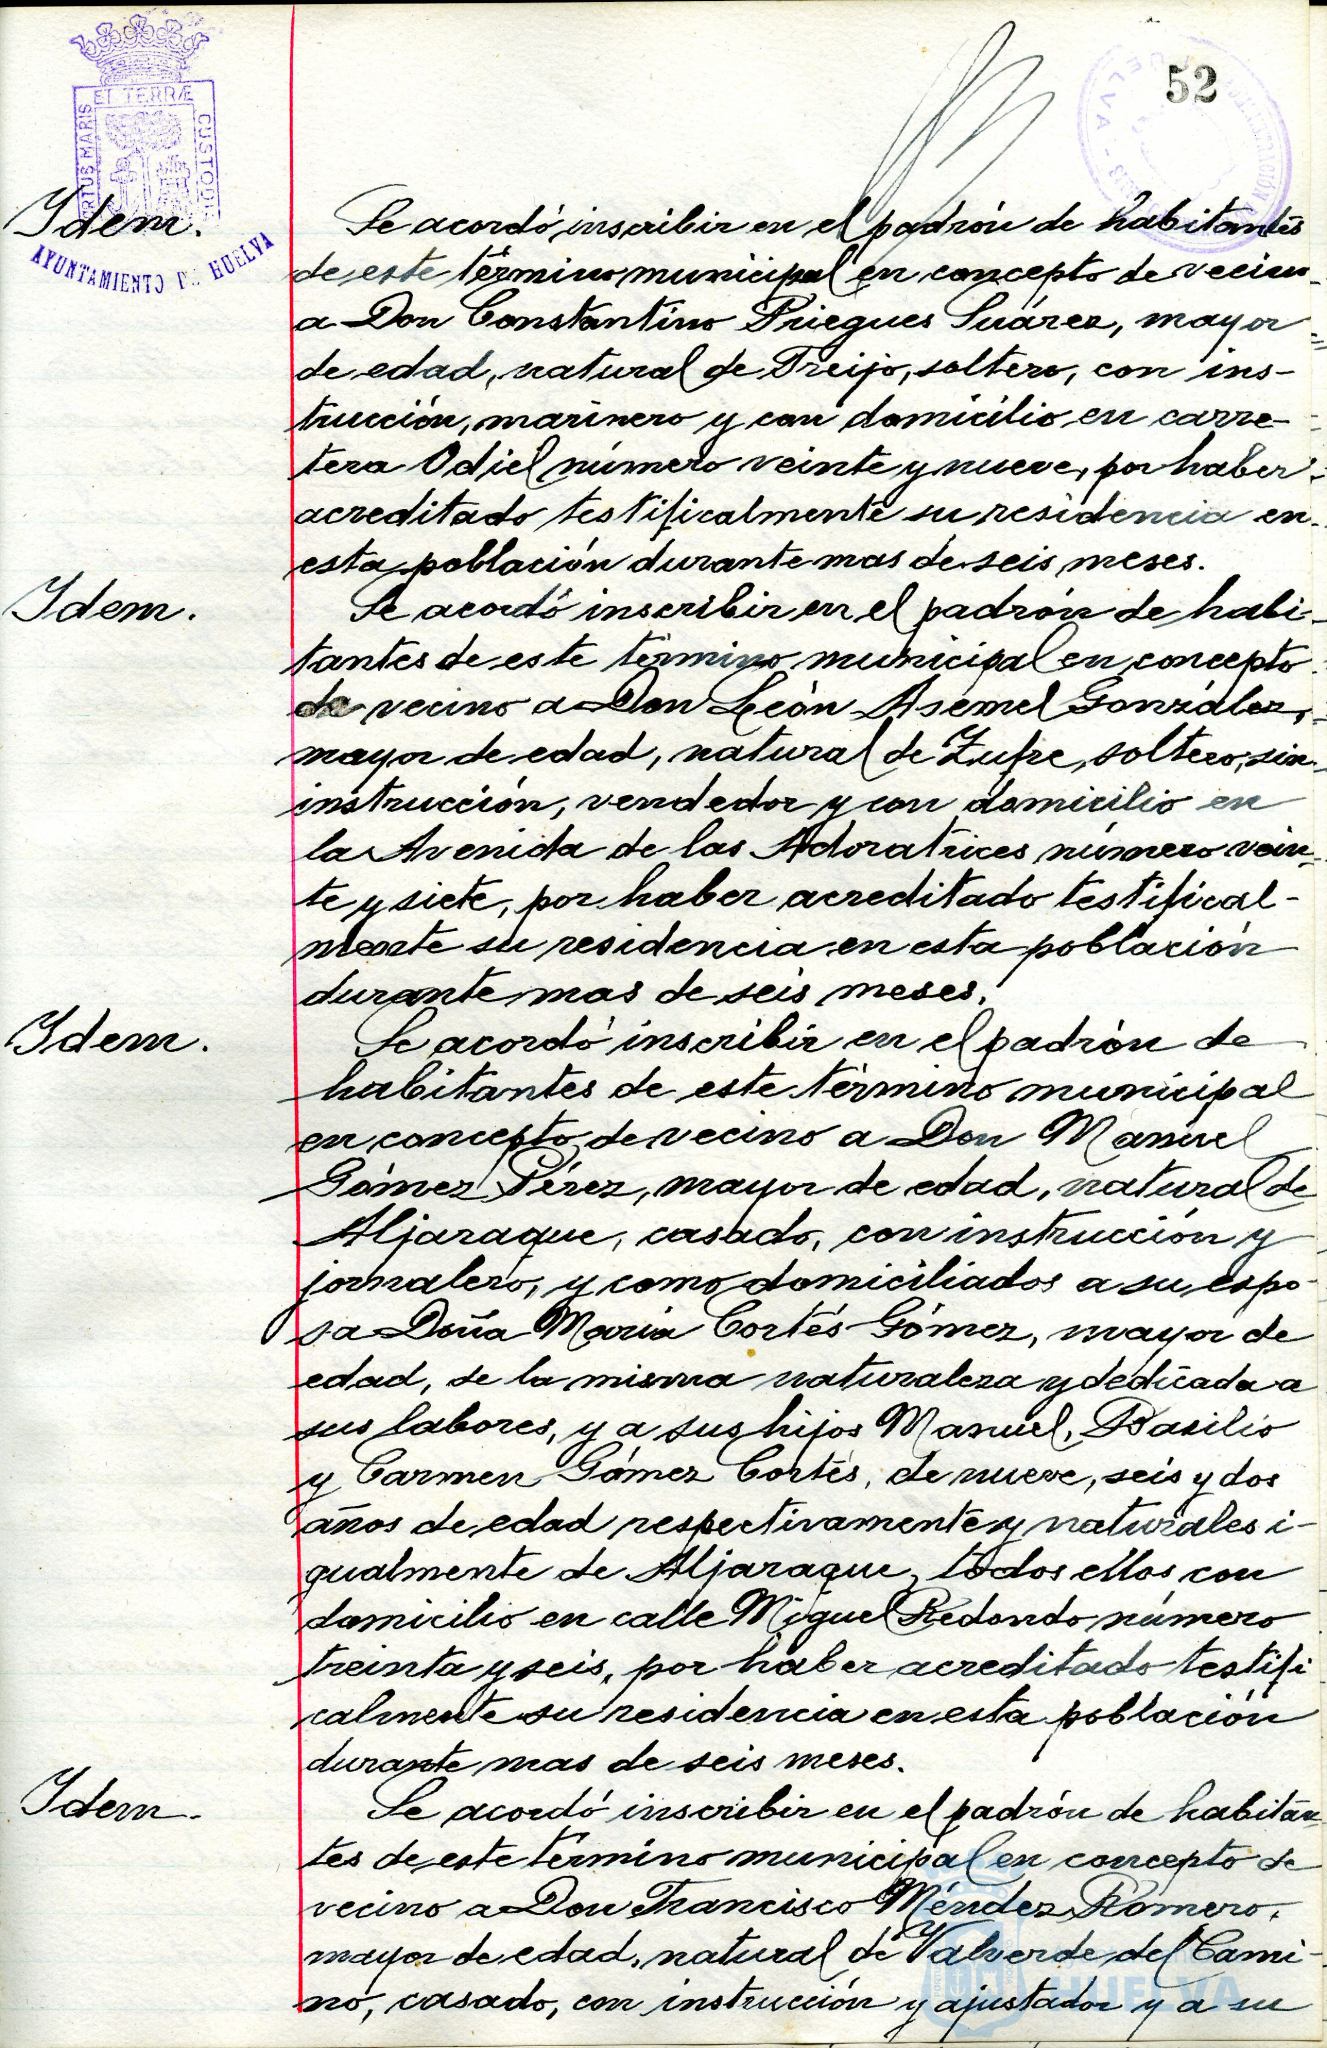 52
ET TERRÆ
CUSTODIA
AYUNTAMIENTO DE HUELVA
Idem.
Se acordó inscribir en el padrón de habitantes
de este término municipal en concepto de vecino
a Don Constantino Priegues Suárez, mayor
de edad, natural de Treijo, soltero, con ins-
trucción, marinero y con domicilio en carre-
tera Odiel número veinte y nueve, por haber
acreditado testificalmente su residencia en
esta población durante mas de seis meses.
Idem.
Se acordó inscribir en el padrón de habi-
tantes de este término municipal en concepto
de vecino a Don León Asemel González,
mayor de edad, natural de Zufre, soltero, sin
instrucción, vendedor y con domicilio en
la Avenida de las Adoratrices número vein-
te y siete, por haber acreditado testifical-
mente su residencia en esta población
durante mas de seis meses.
Idem.
Se acordó inscribir en el padrón de
habitantes de este término municipal
en concepto de vecino a Don Manuel
Gómez Pérez, mayor de edad, natural de
Aljaraque, casado, con instrucción y
jornalero, y como domiciliados a su espo-
sa Doña María Cortés Gómez, mayor de
edad, de la misma naturaleza y dedicada a
sus labores, y a sus hijos Manuel, Basilio
y Carmen Gómez Cortés, de nueve, seis y dos
años de edad respectivamente y naturales i-
gualmente de Aljaraque, todos ellos con
domicilio en calle Miguel Redondo número
treinta y seis, por haber acreditado testifi
calmente su residencia en esta población
durante mas de seis meses.
Idem.
Se acordó inscribir en el padrón de habitan
tes de este término municipal en concepto de
vecino a Don Francisco Méndez Romero,
mayor de edad, natural de Valverde del Cami-
no, casado, con instrucción y ajustador y a su
HUELVA